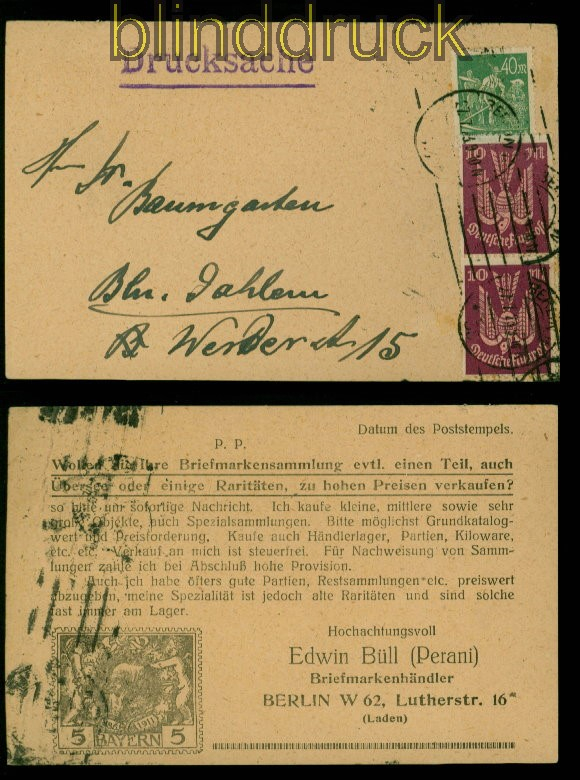 blinddruck
Drucksache
40 m
10 Mk
Deutsche Flugpost
10 Mk
Deutsche Flugpost
Baumgarten
Bln. Dahlem
Werderstr. 15
Datum des Poststempels.
P. P.
Wollen Sie Ihre Briefmarkensammlung evtl. einen Teil, auch
Übersee oder einige Raritäten, zu hohen Preisen verkaufen?
so bitte um sofortige Nachricht. Ich kaufe kleine, mittlere sowie sehr
große Objekte, auch Spezialsammlungen. Bitte möglichst Grundkatalog-
wert und Preisforderung. Kaufe auch Händlerlager, Partien, Kiloware,
etc. etc. Verkauf an mich ist steuerfrei. Für Nachweisung von Samm-
lungen zahle ich bei Abschluß hohe Provision.
Auch ich habe öfters gute Partien, Restsammlungen etc. preiswert
abzugeben, meine Spezialität ist jedoch alte Raritäten und sind solche
fast immer am Lager.
Hochachtungsvoll
Edwin Büll (Perani)
Briefmarkenhändler
BERLIN W 62, Lutherstr. 16
(Laden)
5 BAYERN 5